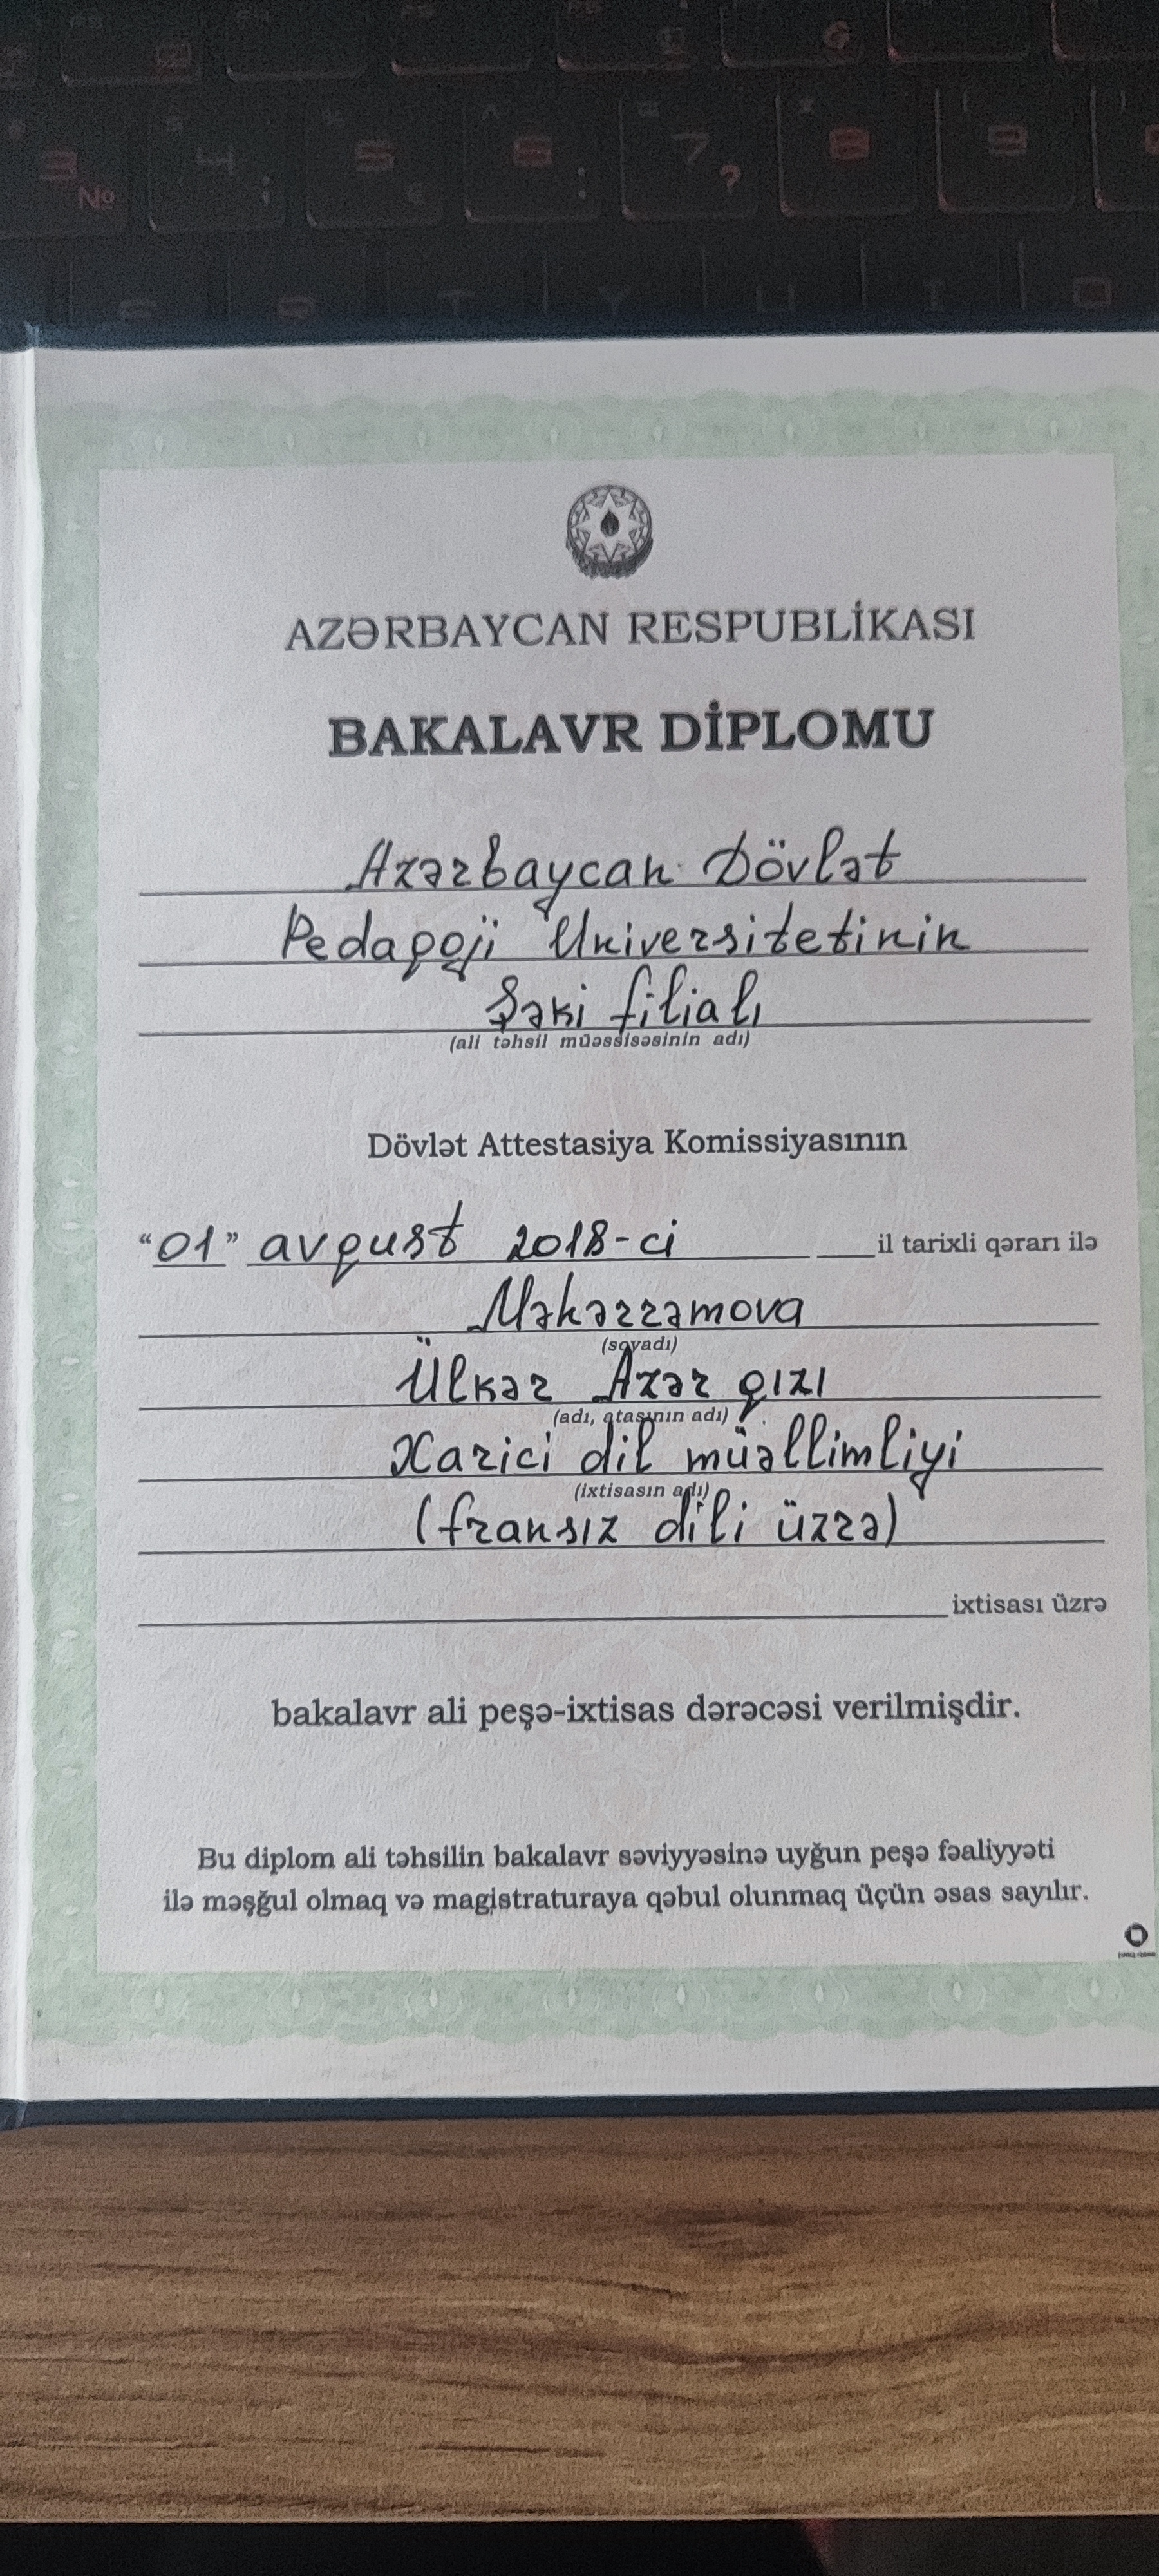 3 № 4 ; 5 € 6 : 7 ? 8 9
R T Y U I O
AZƏRBAYCAN RESPUBLİKASI
BAKALAVR DİPLOMU
Azərbaycan Dövlət
Pedaqoji Universitetinin
Şəki filialı
(ali təhsil müəssisəsinin adı)
Dövlət Attestasiya Komissiyasının
“01” avqust 2018-ci il tarixli qərarı ilə
Məhərrəmova
(soyadı)
Ülkər Azər qızı
(adı, atasının adı)
Xarici dil müəllimliyi
(ixtisasın adı)
(fransız dili üzrə)
ixtisası üzrə
bakalavr ali peşə-ixtisas dərəcəsi verilmişdir.
Bu diplom ali təhsilin bakalavr səviyyəsinə uyğun peşə fəaliyyəti
ilə məşğul olmaq və magistraturaya qəbul olunmaq üçün əsas sayılır.